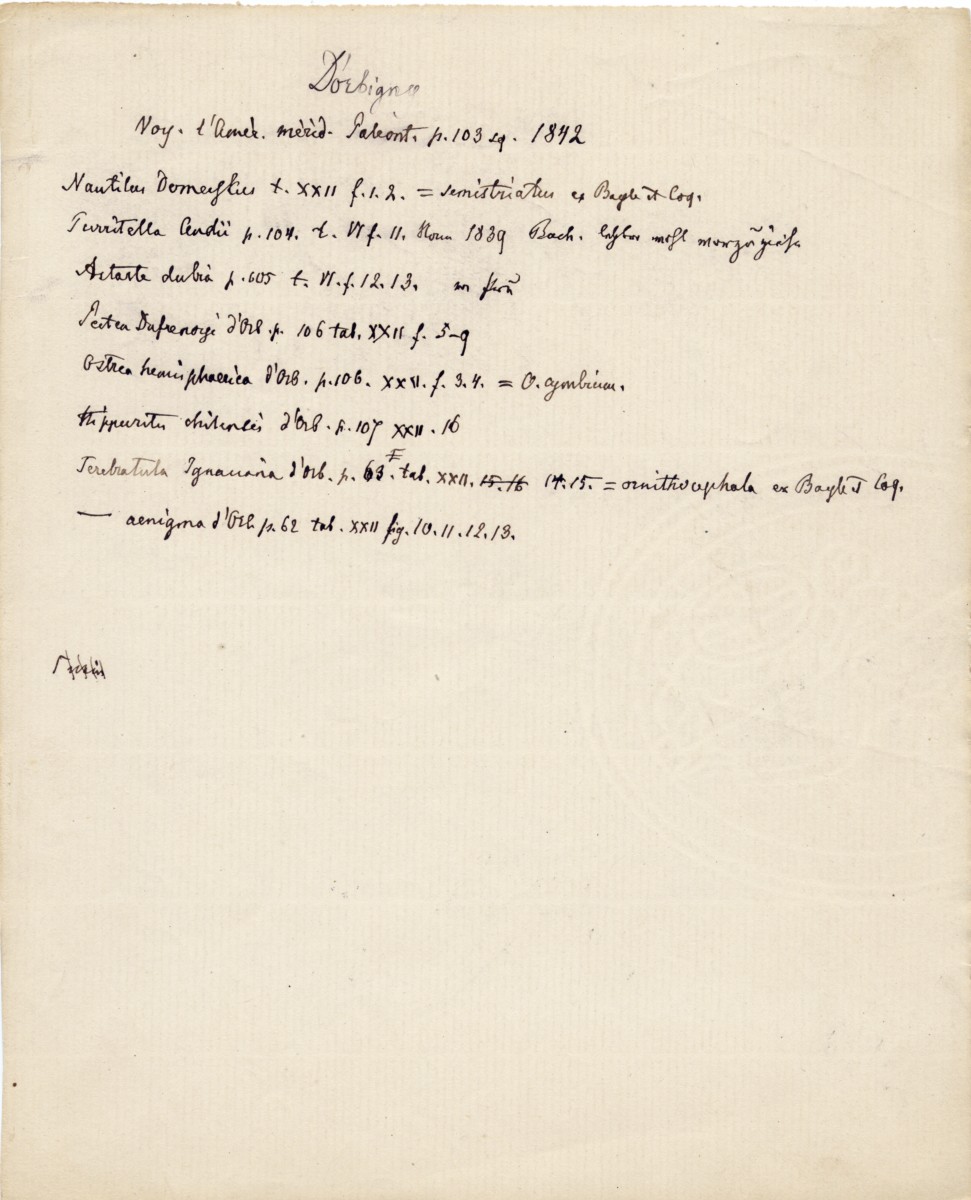 D'orbigny
Voy. l'Amér. mérid. Paléont. p. 103 sq. 1842
Nautilus Domeykus t. XXII f. 1. 2. = semistriatus ex Bayle et Coq.
Turritella Andii p. 104. t. VI f. 11. 1839 Bach.
Astarte dubia p. 105 t. VI. f. 12. 13.
Pecten Dufrenoyi d'Orb. p. 106 tab. XXII f. 5-9
Ostrea hemisphaerica d'Orb. p. 106. XXII. f. 3. 4. = O. cymbium.
Hippurites chilensis d'Orb. p. 107 XXII. 16
Terebratula Ignaciana d'Orb. p. 63. tab. XXII. 15. 16 14. 15. = ornithocephala ex Bayle et Coq.
— aenigma d'Orb. p. 62 tab. XXII fig. 10. 11. 12. 13.